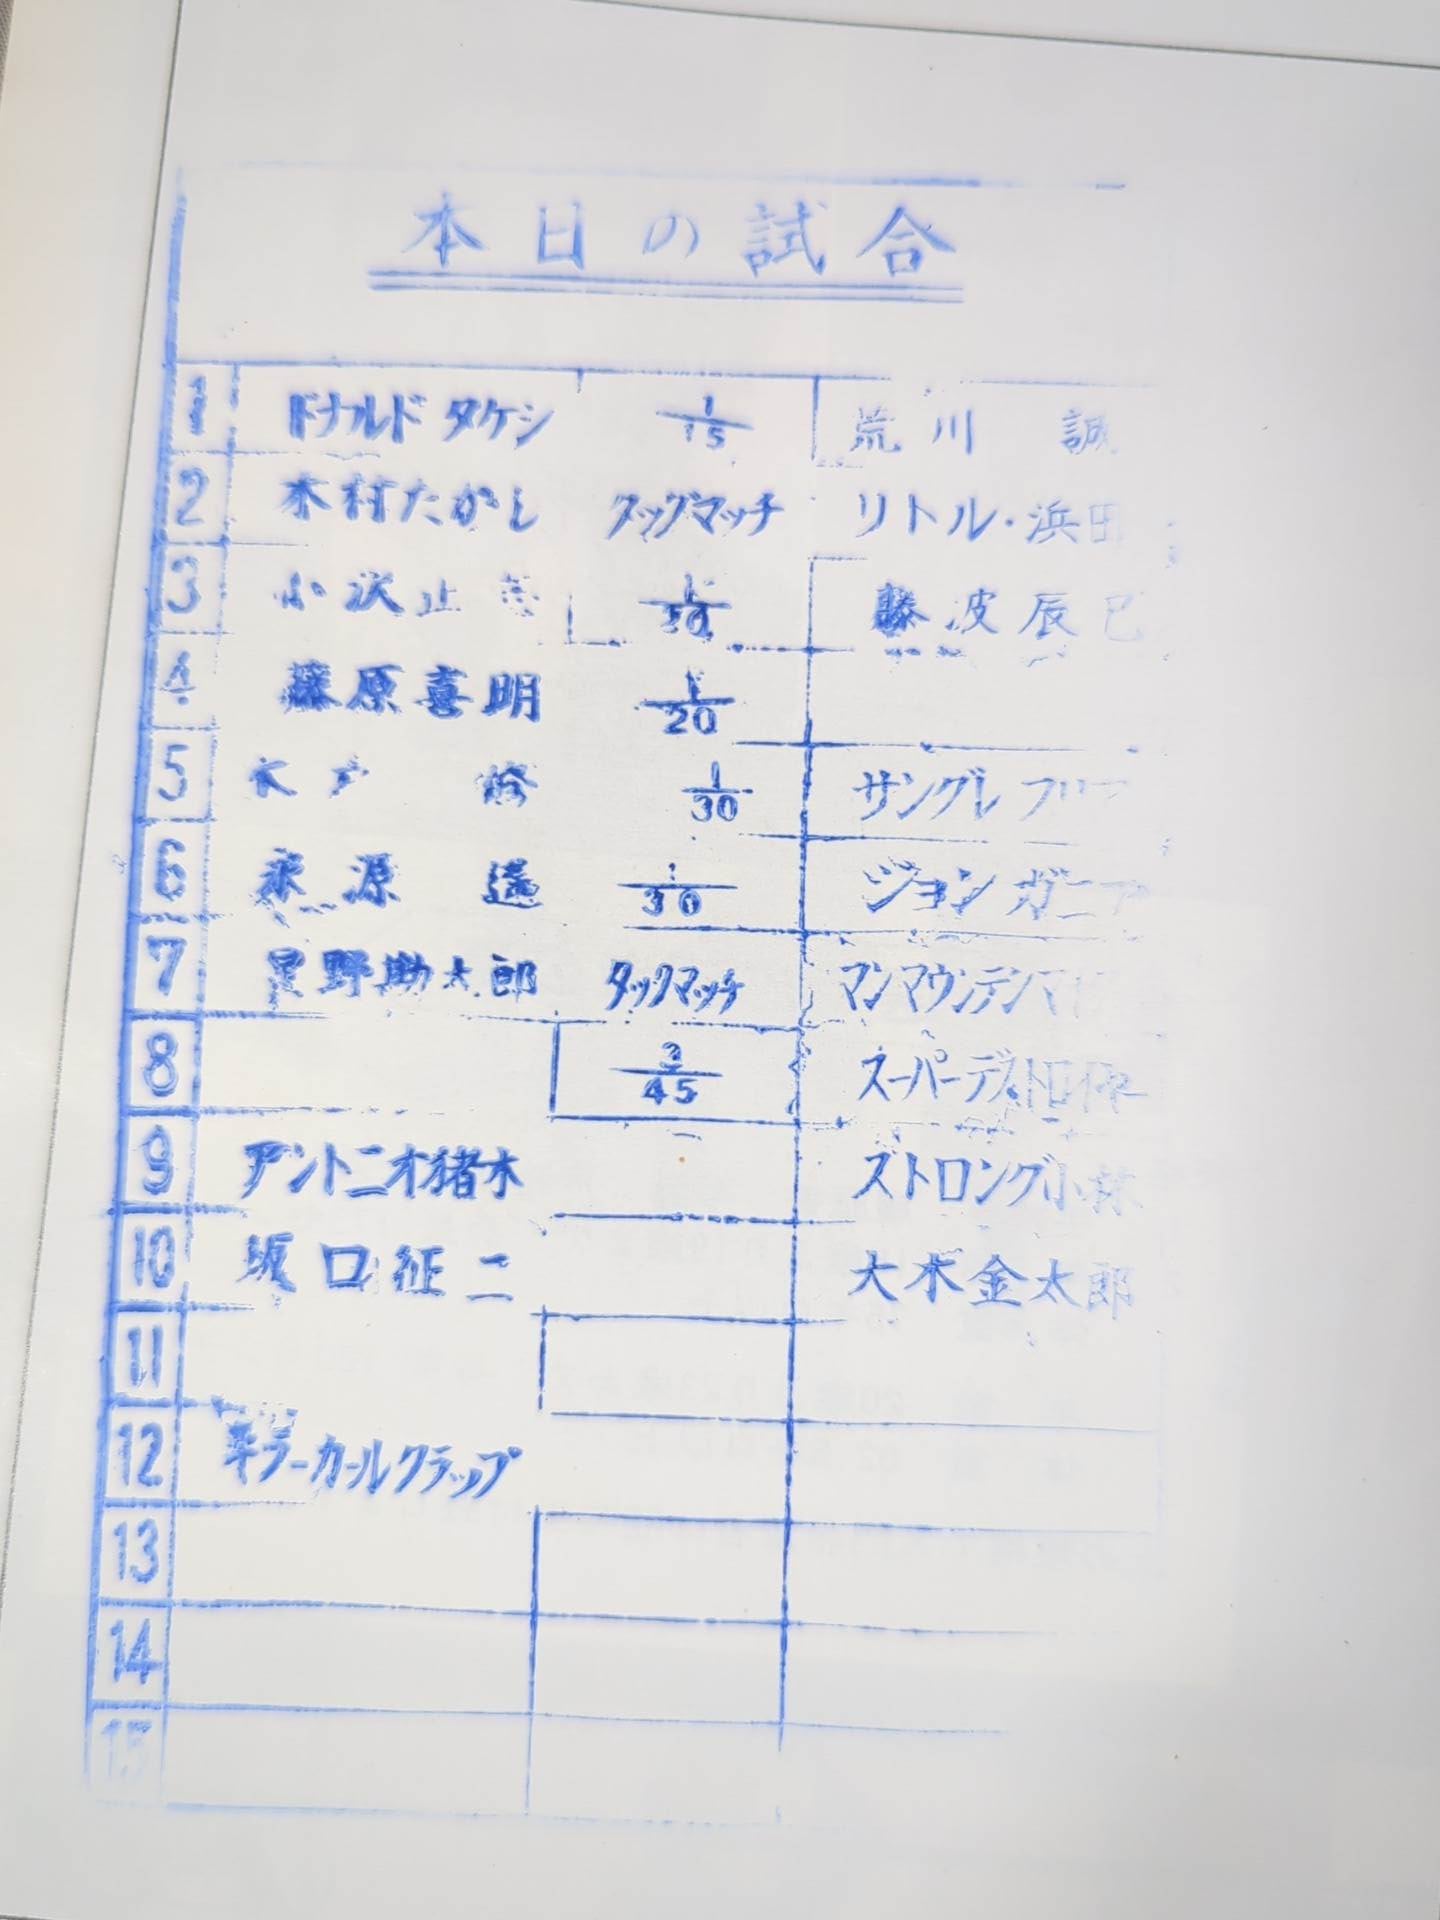 本日の試合
1 ドナルド タケシ 1/15 荒川 誠
2 木村たかし タッグマッチ リトル・浜田
3 小沢正 1/30 藤波辰巳
4 藤原喜明 1/20
5 木戸 修 1/30 サングレ
6 永源 遥 1/30 ジョン ガニア
7 星野勘太郎 タックマッチ マンマウンテンマ
8 3/45 スーパーデストロイヤ
9 アントニオ猪木 ストロング小林
10 坂口征二 大木金太郎
11
12 キラーカールクラップ
13
14
15